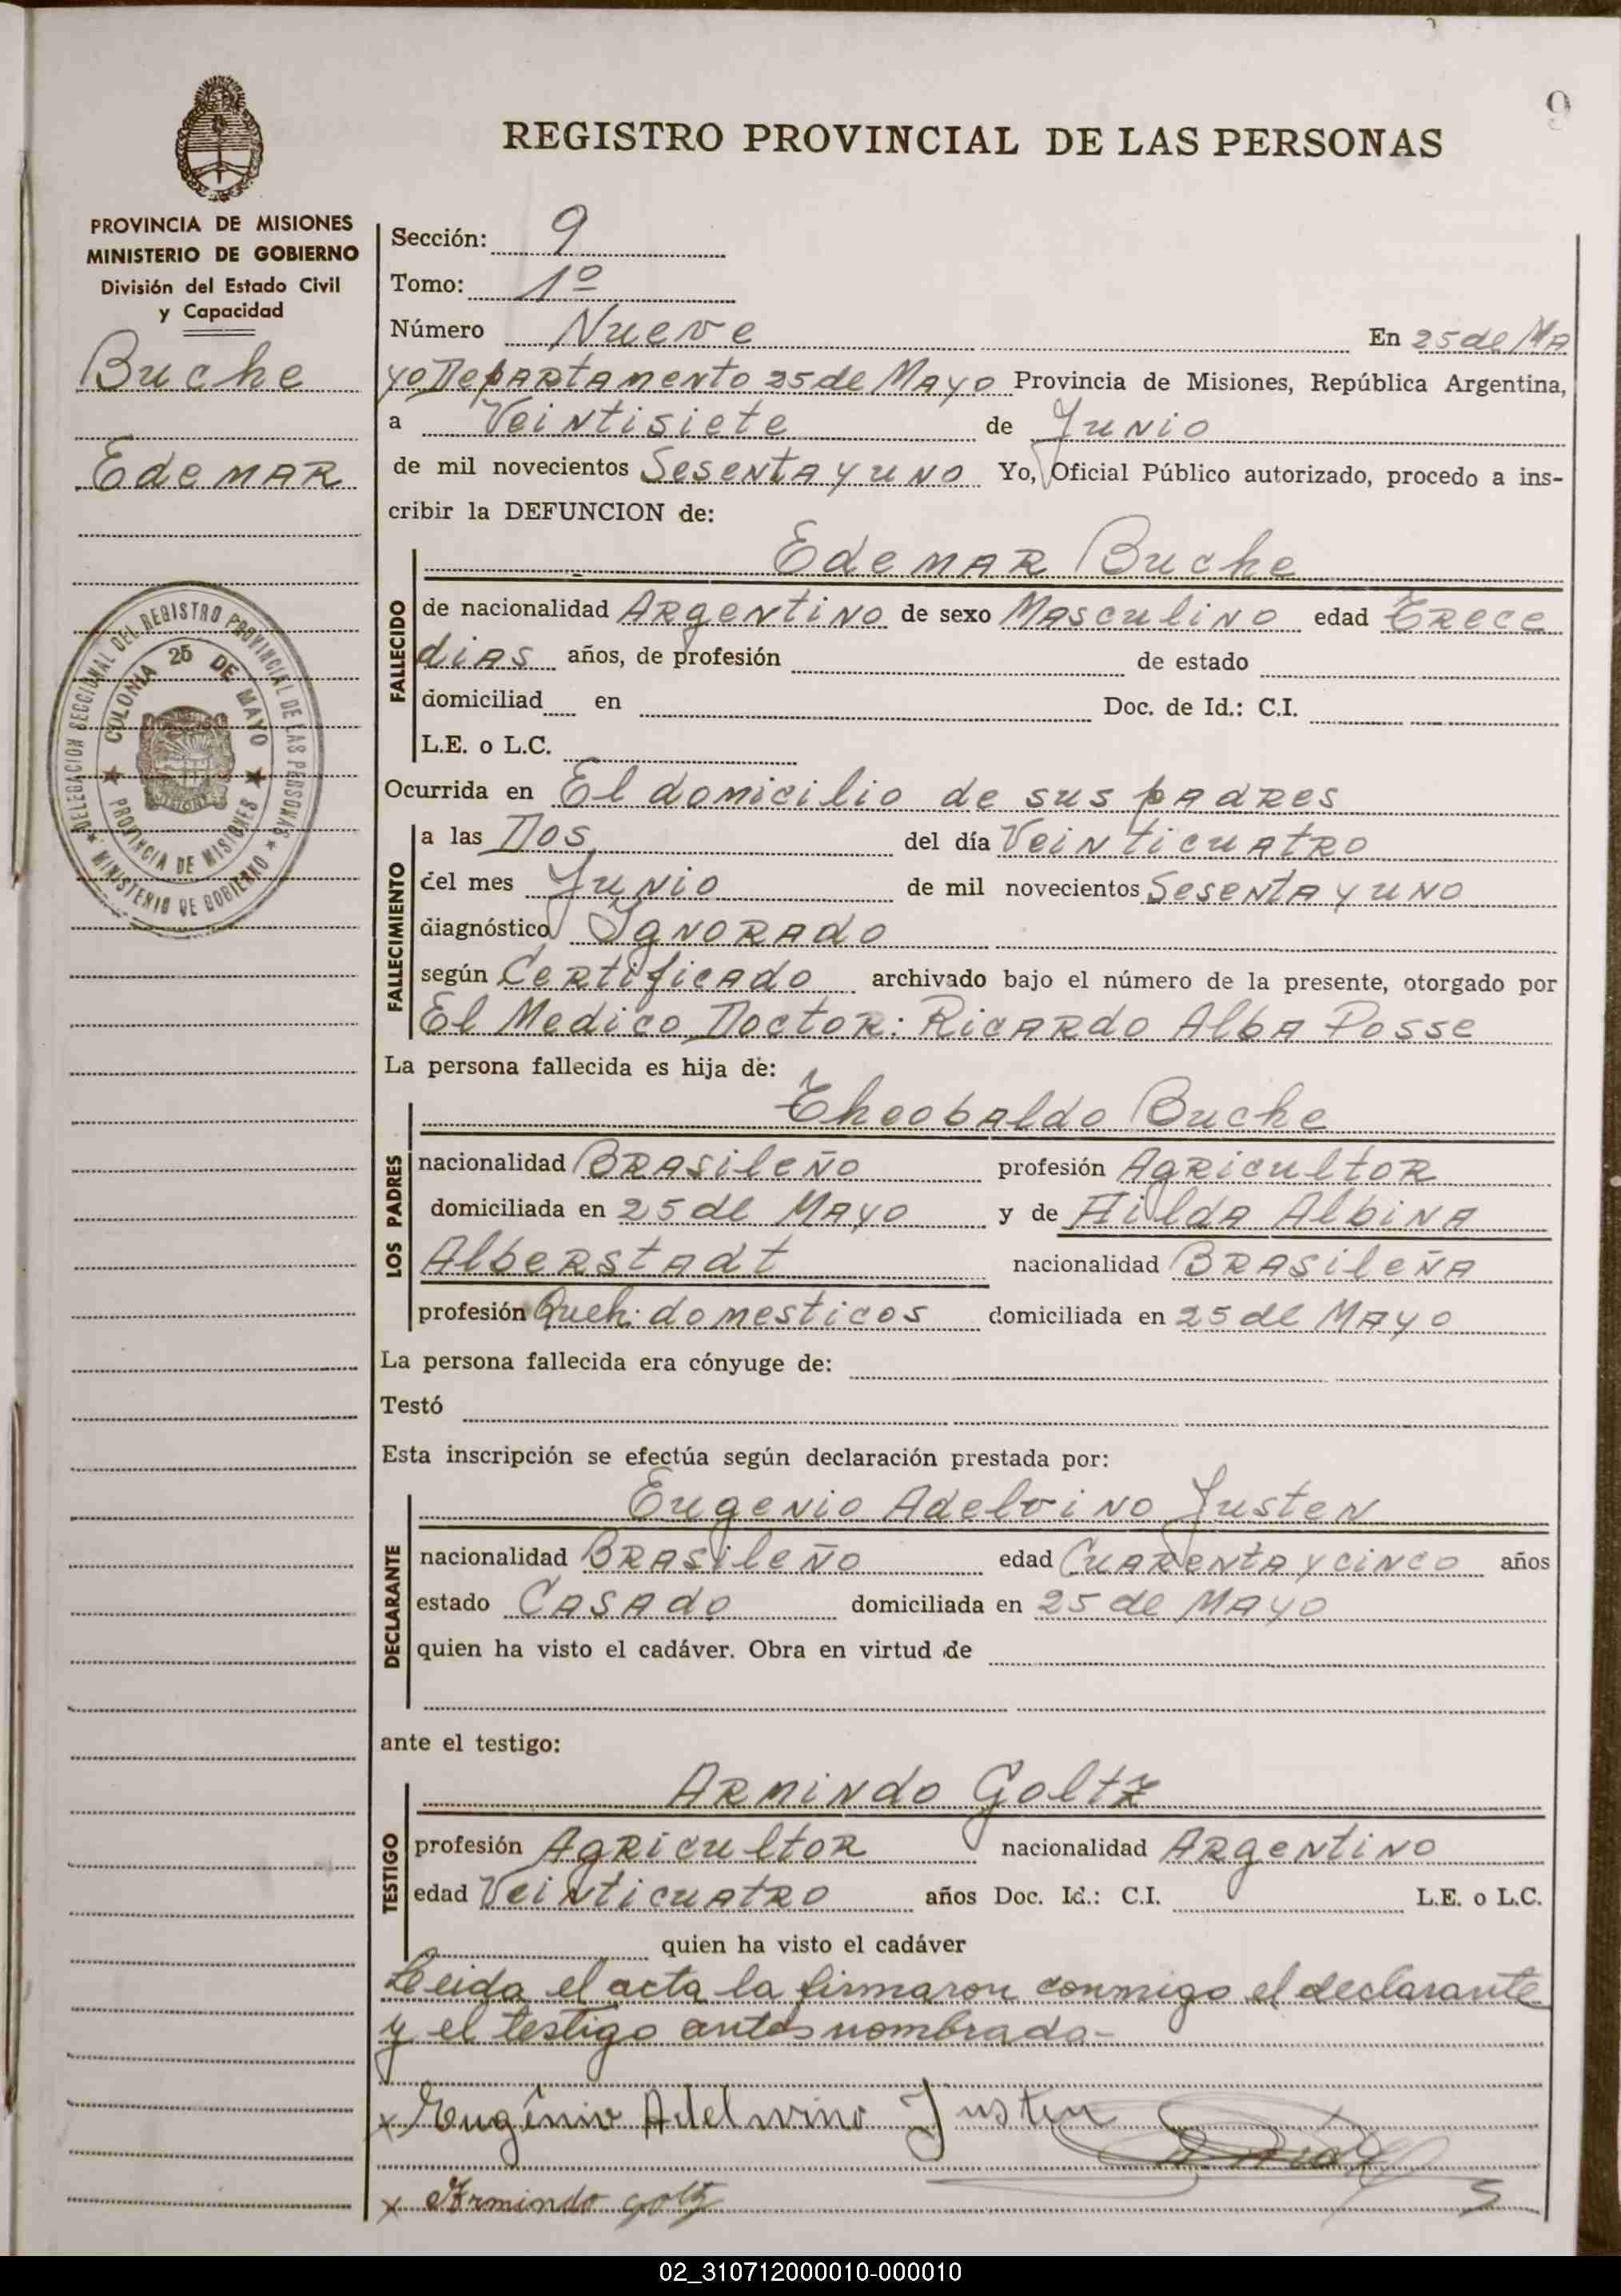 9
REGISTRO PROVINCIAL DE LAS PERSONAS
PROVINCIA DE MISIONES
MINISTERIO DE GOBIERNO
División del Estado Civil
y Capacidad
Buche
Edemar
DELEGACION SECCIONAL DEL REGISTRO PROVINCIAL DE LAS PERSONAS
★ MINISTERIO DE GOBIERNO ★
COLONIA 25 DE MAYO
★ PROVINCIA DE MISIONES ★
Sección: 9
Tomo: 1º
Número Nueve En 25 de Ma
yo Departamento 25 de Mayo Provincia de Misiones, República Argentina,
a Veintisiete de Junio
de mil novecientos Sesenta y uno Yo, Oficial Público autorizado, procedo a ins-
cribir la DEFUNCION de:
Edemar Buche
FALLECIDO
de nacionalidad Argentino de sexo Masculino edad Trece
dias años, de profesión de estado
domiciliad en Doc. de Id.: C.I.
L.E. o L.C.
Ocurrida en El domicilio de sus padres
FALLECIMIENTO
a las Dos del día Veinticuatro
del mes Junio de mil novecientos Sesenta y uno
diagnóstico Ignorado
según Certificado archivado bajo el número de la presente, otorgado por
El Medico Doctor: Ricardo Alba Posse
La persona fallecida es hija de:
Theobaldo Buche
LOS PADRES
nacionalidad Brasileño profesión Agricultor
domiciliada en 25 de Mayo y de Hilda Albina
Alberstadt nacionalidad Brasileña
profesión Queh. domesticos domiciliada en 25 de Mayo
La persona fallecida era cónyuge de:
Testó
Esta inscripción se efectúa según declaración prestada por:
Eugenio Adelvino Justen
DECLARANTE
nacionalidad Brasileño edad Cuarenta y cinco años
estado Casado domiciliada en 25 de Mayo
quien ha visto el cadáver. Obra en virtud de
ante el testigo:
Armindo Goltz
TESTIGO
profesión Agricultor nacionalidad Argentino
edad Veinticuatro años Doc. Id.: C.I. L.E. o L.C.
quien ha visto el cadáver
Leida el acta la firmaron conmigo el declarante
y el testigo antes nombrado-
x Eugênio Adelwino Justen
x Armindo Goltz
02_310712000010-000010